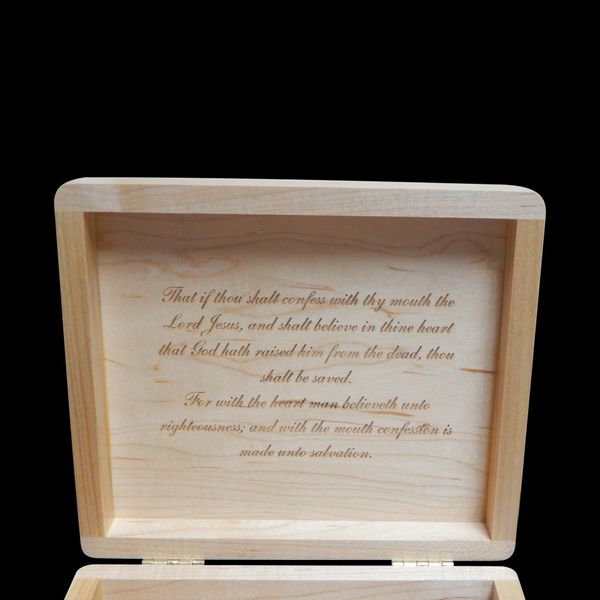 That if thou shalt confess with thy mouth the
Lord Jesus, and shalt believe in thine heart
that God hath raised him from the dead, thou
shalt be saved.
For with the heart man believeth unto
righteousness; and with the mouth confession is
made unto salvation.